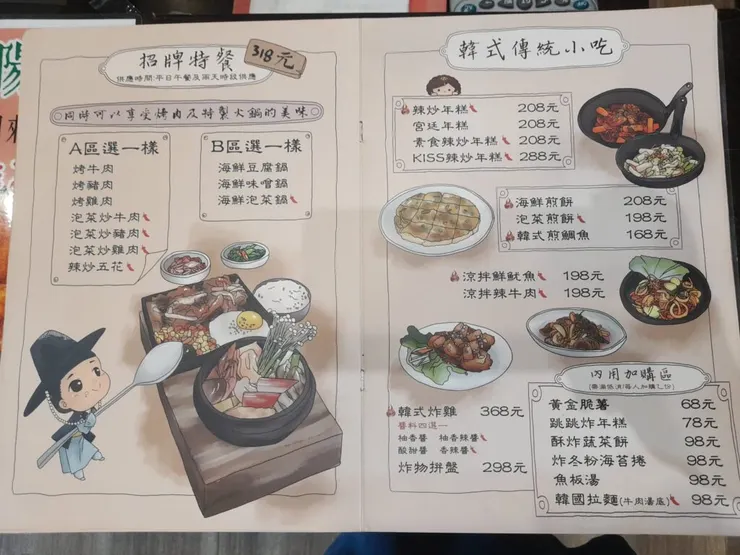 招牌特餐
318元
供應時間:平日午餐及兩天時段供應
同時可以享受烤肉及特製火鍋的美味
A區選一樣
烤牛肉
烤豬肉
烤雞肉
泡菜炒牛肉
泡菜炒豬肉
泡菜炒雞肉
辣炒五花
B區選一樣
海鮮豆腐鍋
海鮮味噌鍋
海鮮泡菜鍋
韓式傳統小吃
辣炒年糕 208元
宮廷年糕 208元
素食辣炒年糕 208元
KISS辣炒年糕 288元
海鮮煎餅 208元
泡菜煎餅 198元
韓式煎鯛魚 168元
涼拌鮮魷魚 198元
涼拌辣牛肉 198元
韓式炸雞 368元
醬料四選一
柚香醬 柚香辣醬
酸甜醬 香辣醬
炸物拼盤 298元
內用加購區
黃金脆薯 68元
跳跳炸年糕 78元
酥炸蔬菜餅 98元
炸冬粉海苔捲 98元
魚板湯 98元
韓國拉麵(牛肉湯底) 98元